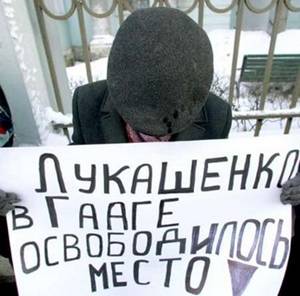 ЛУКАШЕНКО
В ГААГЕ
ОСВОБОДИЛОСЬ
МЕСТО